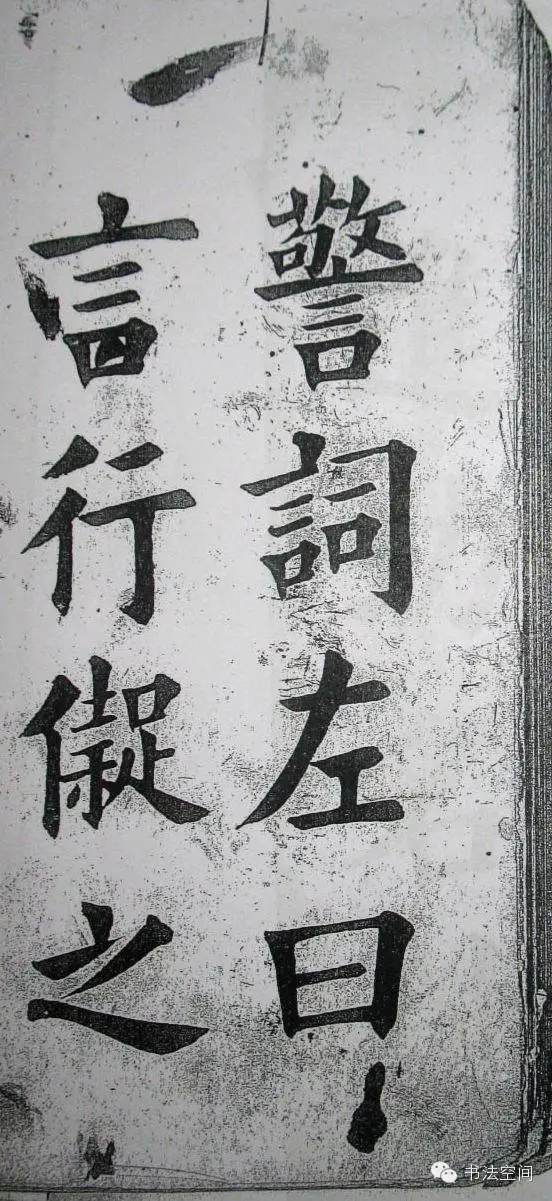 警詞左曰
言行儗之
书法空间